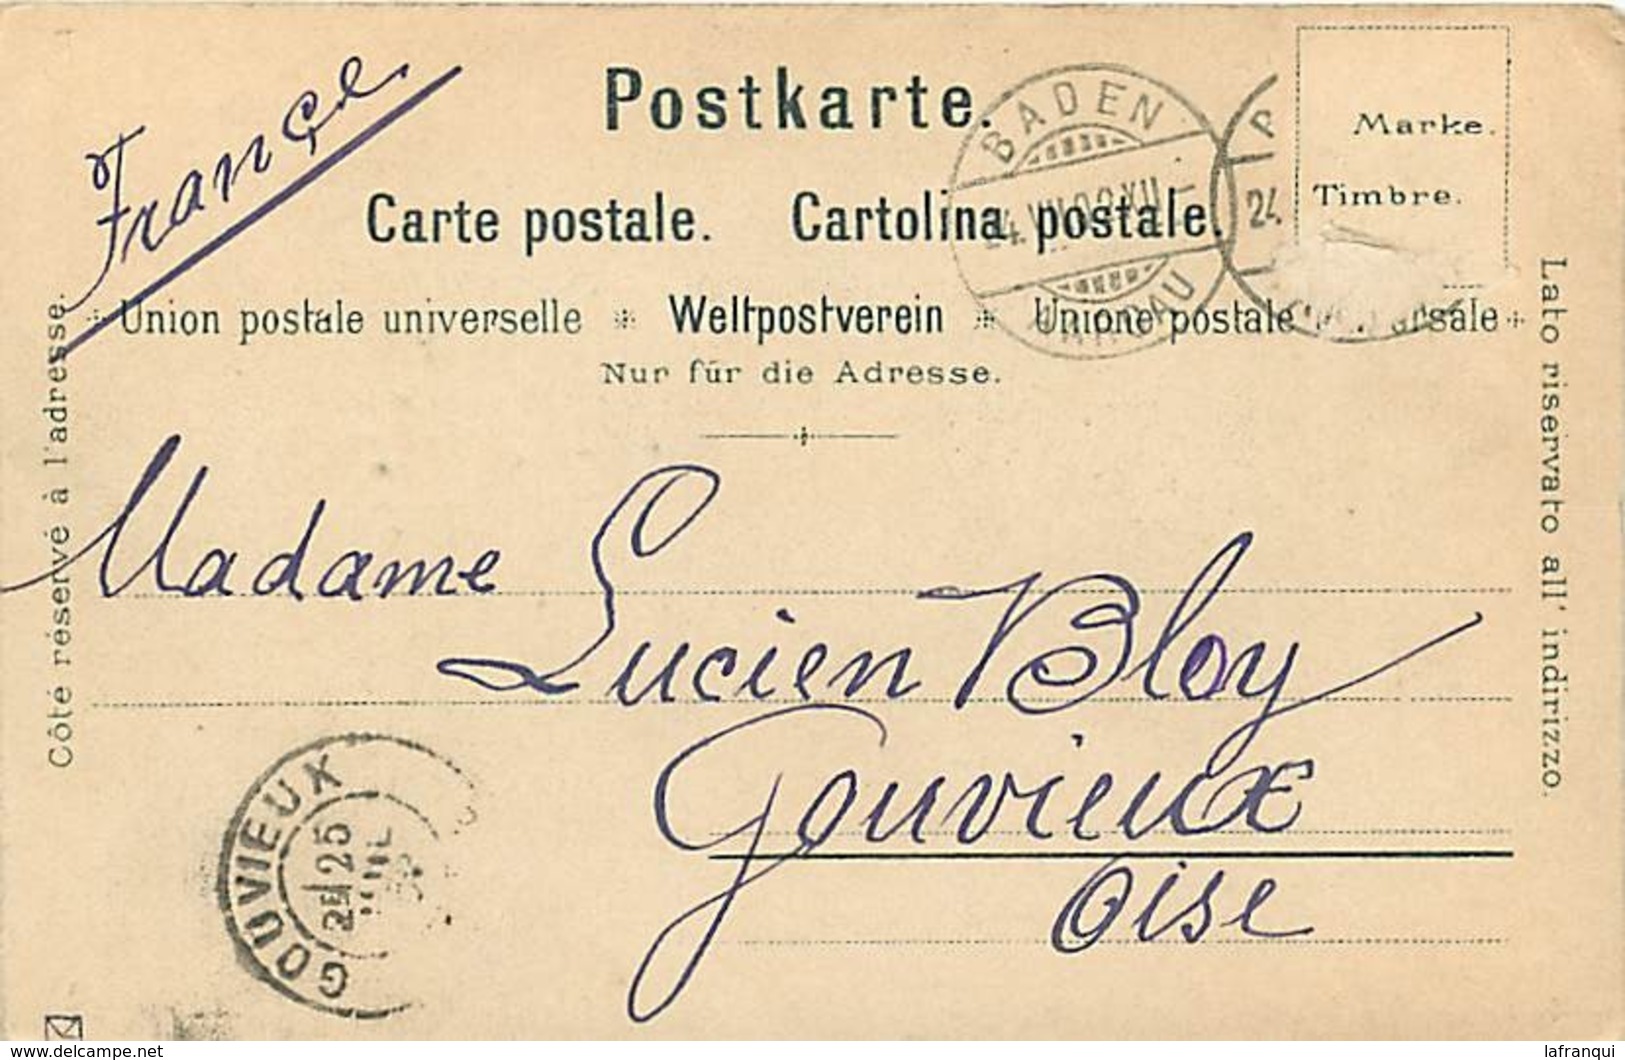 France
Postkarte.
Marke.
Timbre.
Carte postale. Cartolina postale.
Union postale universelle * Weltpostverein * Unione postale
Nur für die Adresse.
BADEN
24
Côté réservé à l'adresse.
Lato riservato all' indirizzo.
Madame
Lucien Bloy
Gouvieux
Oise
GOUVIEUX
25
delcampe.net
lafranqui